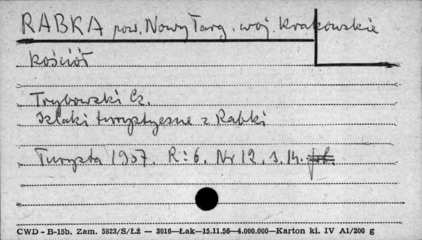 RABKA pow. Nowy Targ. woj. krakowskie
kościół
Trybowski Cz.
Szlaki turystyczne z Rabki
Turysta 1957. R: 6. Nr 12. s. 14.
CWD - B-15b. Zam. 5823/S/Łż — 3016—Łak—15.11.56—4.000.000—Karton kl. IV A1/200 g